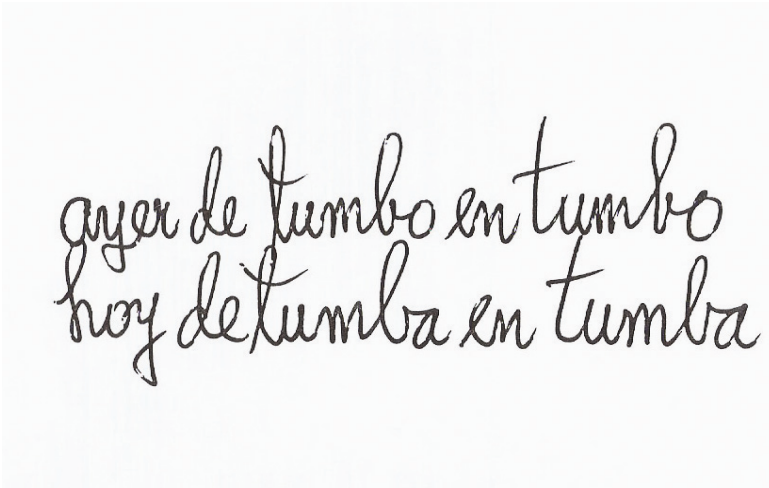 ayer de tumbo en tumbo
hoy de tumba en tumba